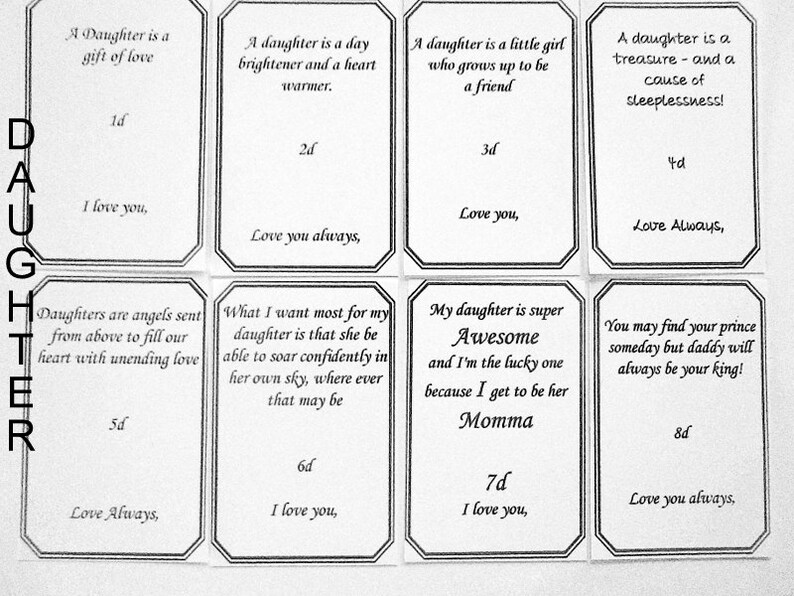 DAUGHTER
A Daughter is a
gift of love
1d
I love you,
A daughter is a day
brightener and a heart
warmer.
2d
Love you always,
A daughter is a little girl
who grows up to be
a friend
3d
Love you,
A daughter is a
treasure - and a
cause of
sleeplessness!
4d
Love Always,
Daughters are angels sent
from above to fill our
heart with unending love
5d
Love Always,
What I want most for my
daughter is that she be
able to soar confidently in
her own sky, where ever
that may be
6d
I love you,
My daughter is super
Awesome
and I'm the lucky one
because I get to be her
Momma
7d
I love you,
You may find your prince
someday but daddy will
always be your king!
8d
Love you always,